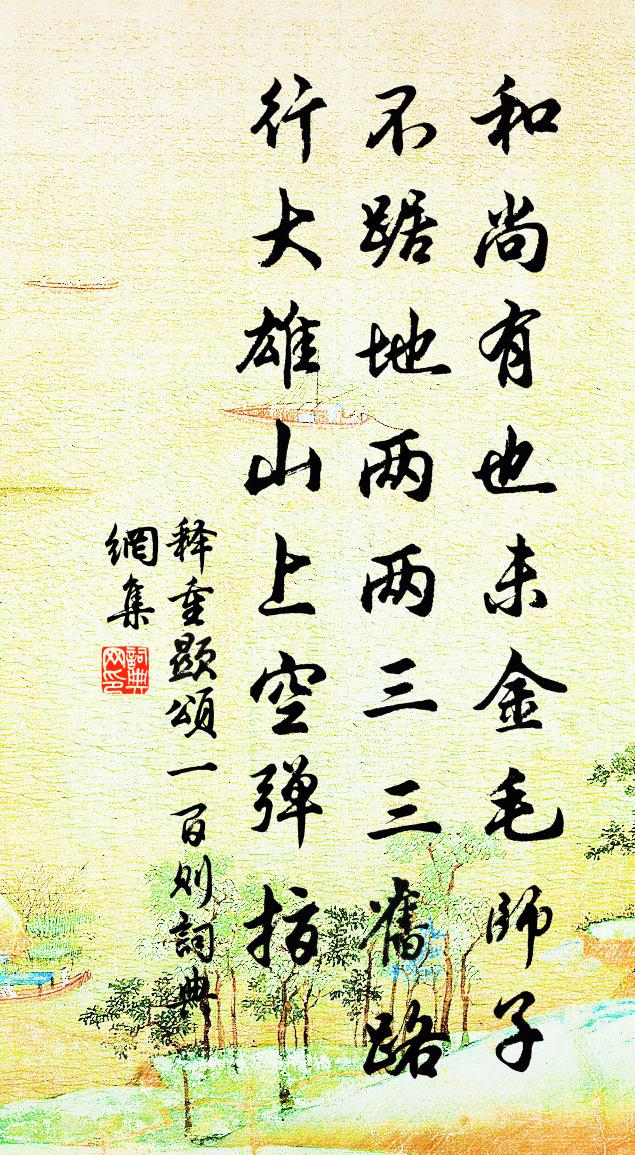 和尚有也未金毛師子
不踞地两两三三舊路
行大雄山上空弹指
释重顕頌一百则詞典
網集
詞典网印